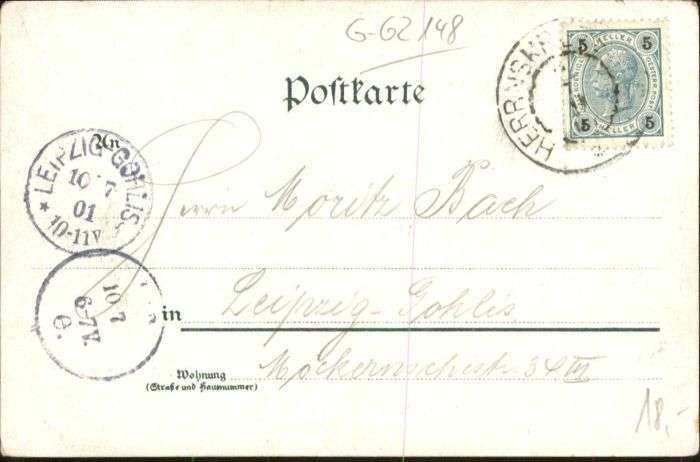 G-GZ 148
5 HELLER 5
5 HELLER 5
HERRNSKR
Postkarte
An
LEIPZIG-GOHLIS
10 7
01
10-11V
Herrn Moritz Bach
10 7
6-7V.
e.
in Leipzig-Gohlis
Wohnung
(Straße und Hausnummer)
Möckernschestr. 34 III
18,-